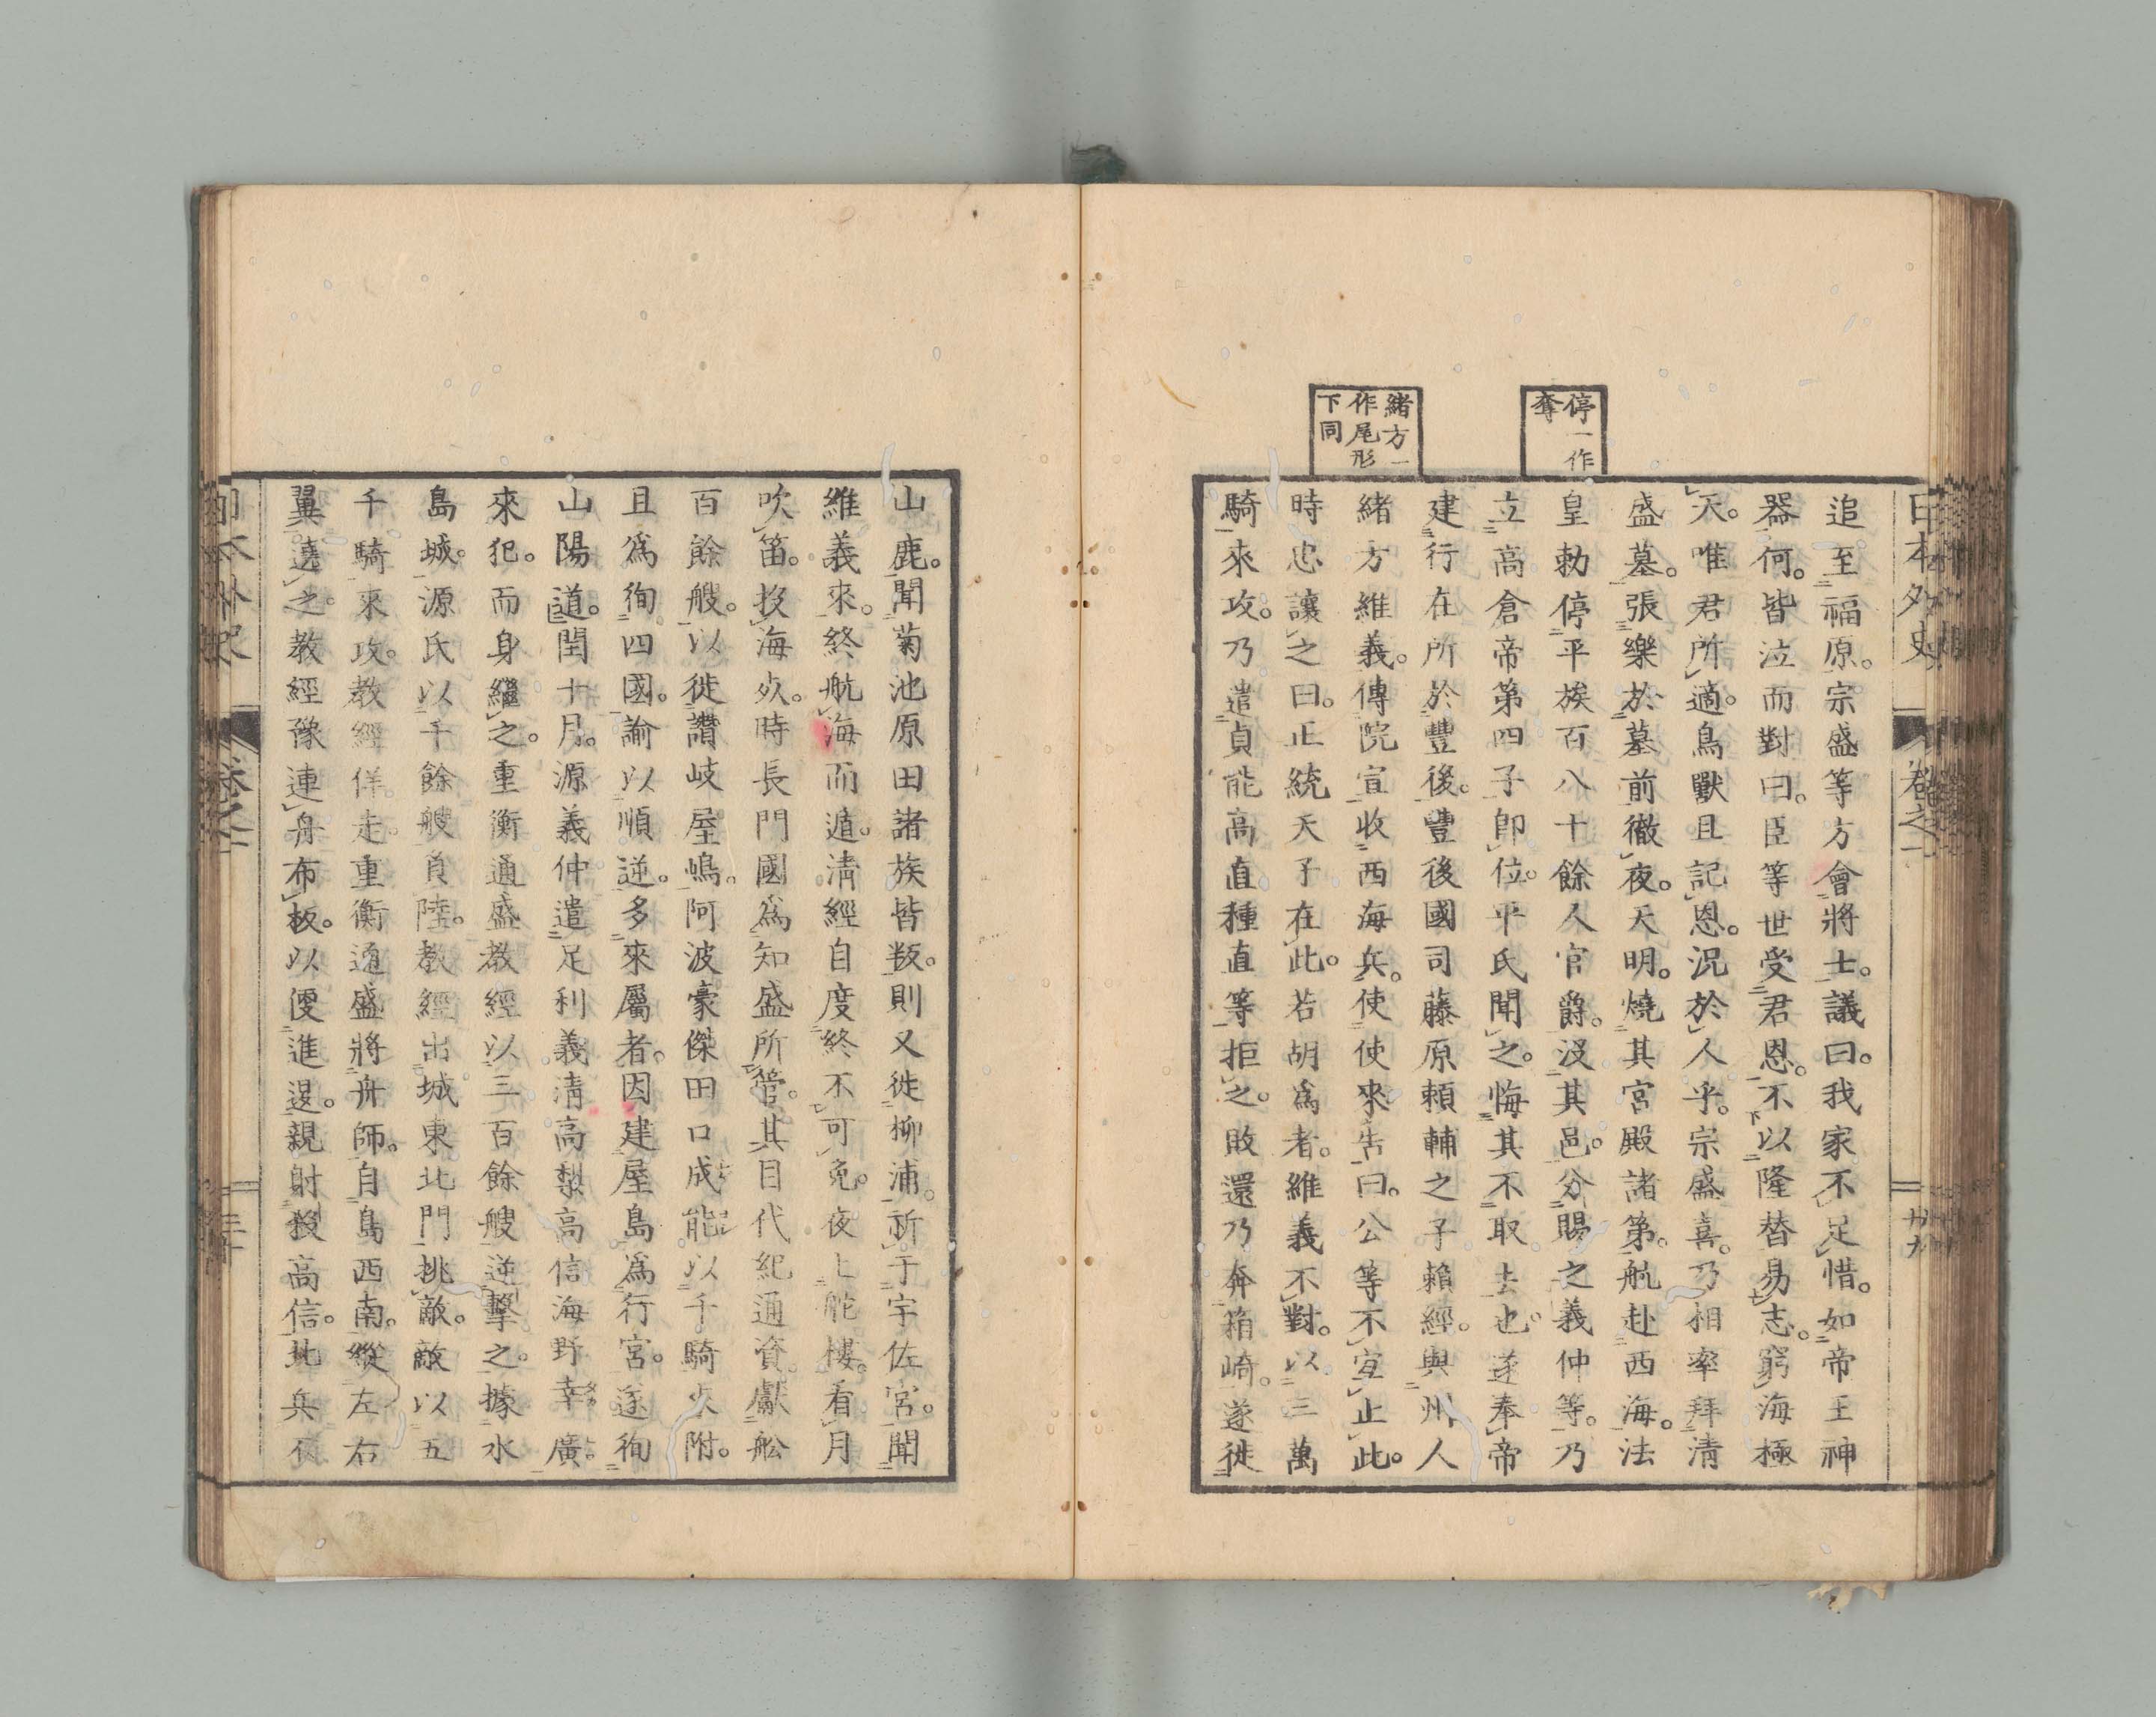 日本外史
卷之一
廿九
停一作
奪
緒方一
作尾形
下同
追至福原。宗盛等方會將士。議曰。我家不足惜。如帝王神
器何。皆泣而對曰。臣等世受君恩。不以隆替易志。窮海極
天。唯君所適。鳥獸且記恩。況於人乎。宗盛喜。乃相率拜清
盛墓。張樂於墓前徹夜。天明。燒其宮殿諸第。航赴西海。法
皇勅停平族百八十餘人官爵。沒其邑。分賜之義仲等。乃
立高倉帝第四子即位。平氏聞之。悔其不取去也。遂奉帝
建行在所於豐後。豐後國司藤原賴輔之子賴經。與州人
緒方維義。傳院宣收西海兵。使使來告曰。公等不宜止此。
時忠讓之曰。正統天子在此。若胡為者。維義不對。以三萬
騎來攻。乃遣貞能高直種直等拒之。敗還乃奔箱崎。遂徙
山鹿。聞菊池原田諸族皆叛。則又徙柳浦。祈于宇佐宮。聞
維義來。終航海而遁。清經自度終不可免。夜上舵樓。看月
吹笛。投海死。時長門國為知盛所管。其目代紀通資。獻船
百餘艘。以徙讚岐屋嶋。阿波豪傑田口成能以千騎來附。
且為徇四國。諭以順逆。多來屬者。因建屋島為行宮。遂徇
山陽道。閏十月。源義仲遣足利義清高梨高信海野幸廣。
來犯。而身繼之。重衡通盛教經以三百餘艘逆擊之。據水
島城。源氏以千餘艘負陸。教經出城東北門挑敵。敵以五
千騎來攻。教經佯走。重衡通盛將舟師。自島西南。縱左右
翼遶之。教經豫連舟布板。以便進退。親射殺高信。北兵
日本外史
卷之一
三十